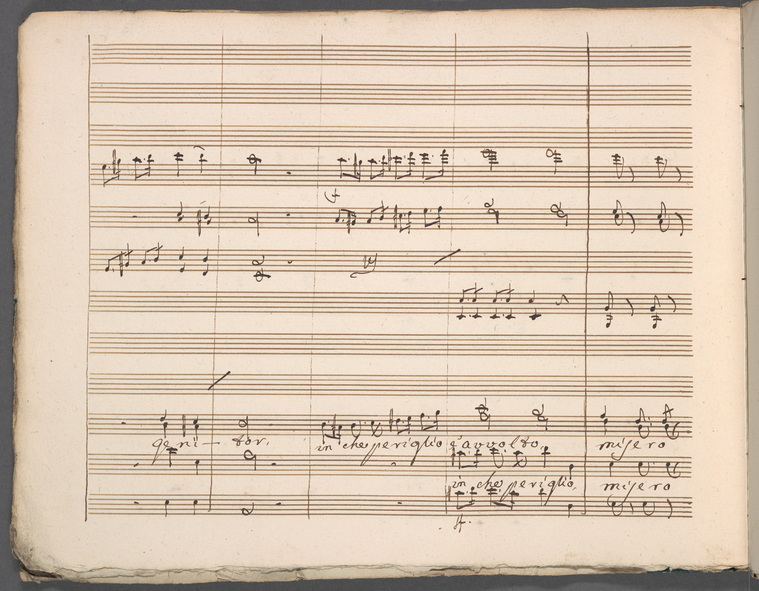 geni - tor, in che periglio è avvolto, misero
in che periglio, misero